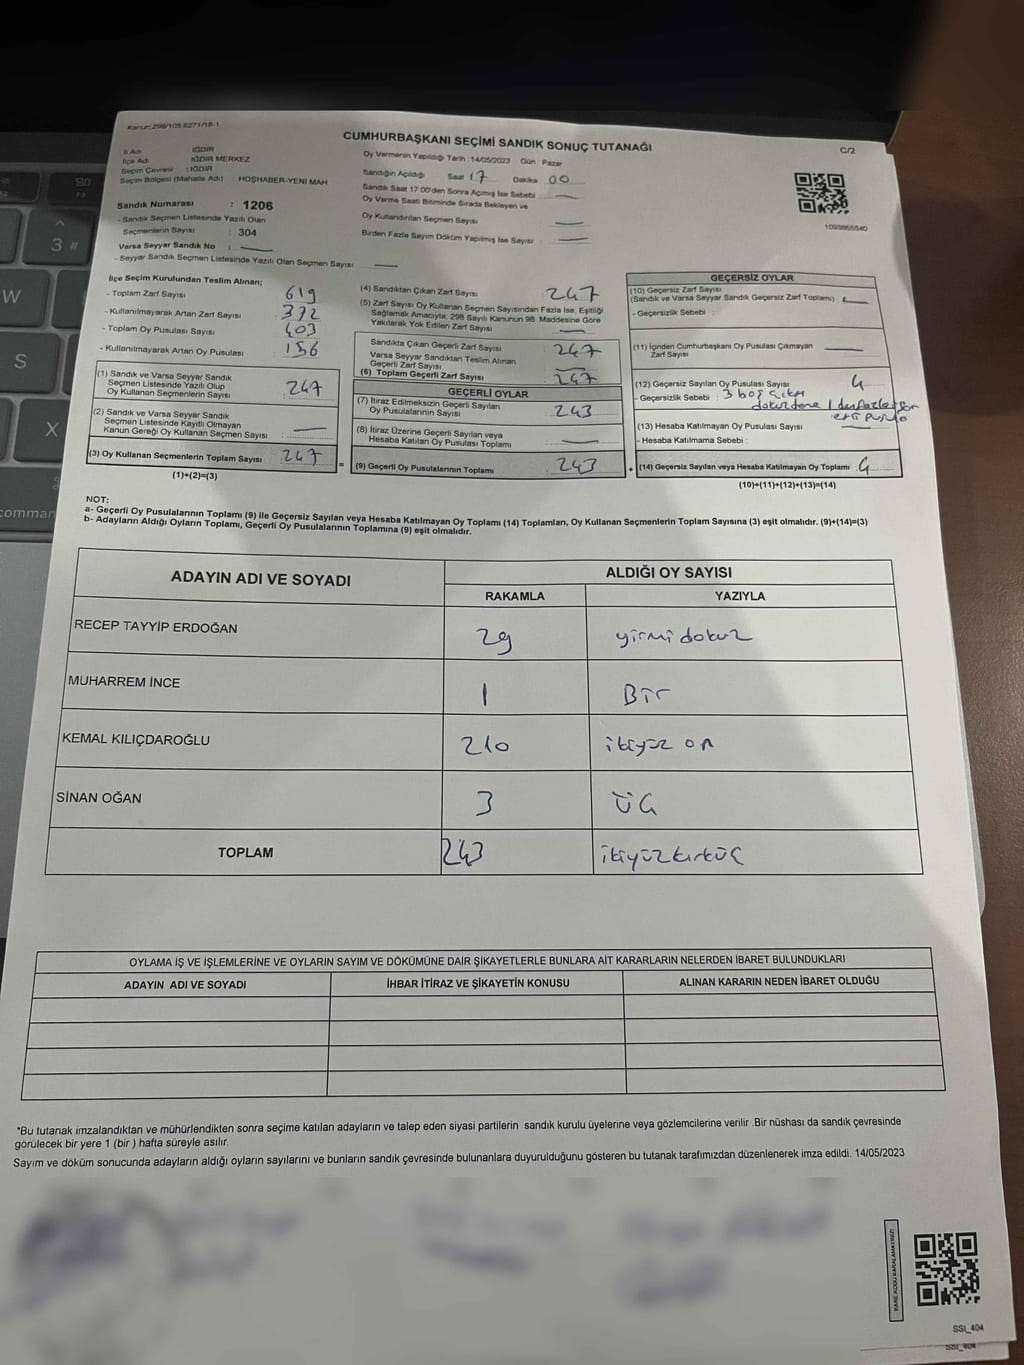 Kanun:298/105.6271/18-1
CUMHURBAŞKANI SEÇİMİ SANDIK SONUÇ TUTANAĞI
C/2
İl Adı IĞDIR
İlçe Adı IĞDIR MERKEZ
Seçim Çevresi : IĞDIR
Seçim Bölgesi (Mahalle Adı) : HOŞHABER-YENI MAH
Sandık Numarası : 1206
- Sandık Seçmen Listesinde Yazılı Olan
Seçmenlerin Sayısı : 304
Varsa Seyyar Sandık No : —
- Seyyar Sandık Seçmen Listesinde Yazılı Olan Seçmen Sayısı —
Oy Vermenin Yapıldığı Tarih :14/05/2023 Gün : Pazar
Sandığın Açıldığı Saat 17 Dakika 00
Sandık Saat 17:00'den Sonra Açılmış İse Sebebi : —
Oy Verme Saati Bitiminde Sırada Bekleyen ve
Oy Kullandırılan Seçmen Sayısı —
Birden Fazla Sayım Döküm Yapılmış İse Sayısı —
İlçe Seçim Kurulundan Teslim Alınan;
- Toplam Zarf Sayısı 619
- Kullanılmayarak Artan Zarf Sayısı 372
- Toplam Oy Pusulası Sayısı 403
- Kullanılmayarak Artan Oy Pusulası 156
(1) Sandık ve Varsa Seyyar Sandık
Seçmen Listesinde Yazılı Olup
Oy Kullanan Seçmenlerin Sayısı 247
(2) Sandık ve Varsa Seyyar Sandık
Seçmen Listesinde Kayıtlı Olmayan
Kanun Gereği Oy Kullanan Seçmen Sayısı —
(3) Oy Kullanan Seçmenlerin Toplam Sayısı 247
(1)+(2)=(3)
(4) Sandıktan Çıkan Zarf Sayısı 247
(5) Zarf Sayısı Oy Kullanan Seçmen Sayısından Fazla İse, Eşitliği
Sağlamak Amacıyla, 298 Sayılı Kanunun 98. Maddesine Göre
Yakılarak Yok Edilen Zarf Sayısı —
Sandıkta Çıkan Geçerli Zarf Sayısı 247
Varsa Seyyar Sandıktan Teslim Alınan
Geçerli Zarf Sayısı —
(6) Toplam Geçerli Zarf Sayısı 247
GEÇERLİ OYLAR
(7) İtiraz Edilmeksizin Geçerli Sayılan
Oy Pusulalarının Sayısı 243
(8) İtiraz Üzerine Geçerli Sayılan veya
Hesaba Katılan Oy Pusulası Toplamı —
= (9) Geçerli Oy Pusulalarının Toplamı 243
GEÇERSİZ OYLAR
(10) Geçersiz Zarf Sayısı
(Sandık ve Varsa Seyyar Sandık Geçersiz Zarf Toplamı) —
- Geçersizlik Sebebi :
(11) İçinden Cumhurbaşkanı Oy Pusulası Çıkmayan
Zarf Sayısı —
(12) Geçersiz Sayılan Oy Pusulası Sayısı 4
- Geçersizlik Sebebi : 3 boş
(13) Hesaba Katılmayan Oy Pusulası Sayısı —
- Hesaba Katılmama Sebebi :
+ (14) Geçersiz Sayılan veya Hesaba Katılmayan Oy Toplamı 4
(10)+(11)+(12)+(13)=(14)
NOT:
a- Geçerli Oy Pusulalarının Toplamı (9) ile Geçersiz Sayılan veya Hesaba Katılmayan Oy Toplamı (14) Toplamları, Oy Kullanan Seçmenlerin Toplam Sayısına (3) eşit olmalıdır. (9)+(14)=(3)
b- Adayların Aldığı Oyların Toplamı, Geçerli Oy Pusulalarının Toplamına (9) eşit olmalıdır.
ADAYIN ADI VE SOYADI
ALDIĞI OY SAYISI
RAKAMLA YAZIYLA
RECEP TAYYİP ERDOĞAN 29 yirmi dokuz
MUHARREM İNCE 1 Bir
KEMAL KILIÇDAROĞLU 210 ikiyüz on
SİNAN OĞAN 3 ÜÇ
TOPLAM 243 ikiyüzkırküç
OYLAMA İŞ VE İŞLEMLERİNE VE OYLARIN SAYIM VE DÖKÜMÜNE DAİR ŞİKAYETLERLE BUNLARA AİT KARARLARIN NELERDEN İBARET BULUNDUKLARI
ADAYIN ADI VE SOYADI İHBAR İTİRAZ VE ŞİKAYETİN KONUSU ALINAN KARARIN NEDEN İBARET OLDUĞU
*Bu tutanak imzalandıktan ve mühürlendikten sonra seçime katılan adayların ve talep eden siyasi partilerin sandık kurulu üyelerine veya gözlemcilerine verilir .Bir nüshası da sandık çevresinde
görülecek bir yere 1 (bir ) hafta süreyle asılır.
Sayım ve döküm sonucunda adayların aldığı oyların sayılarını ve bunların sandık çevresinde bulunanlara duyurulduğunu gösteren bu tutanak tarafımızdan düzenlenerek imza edildi. 14/05/2023
KARE KODU KARALAMAYINIZ!
SSI_404
SSI_404
W
S
X
3 #
comman